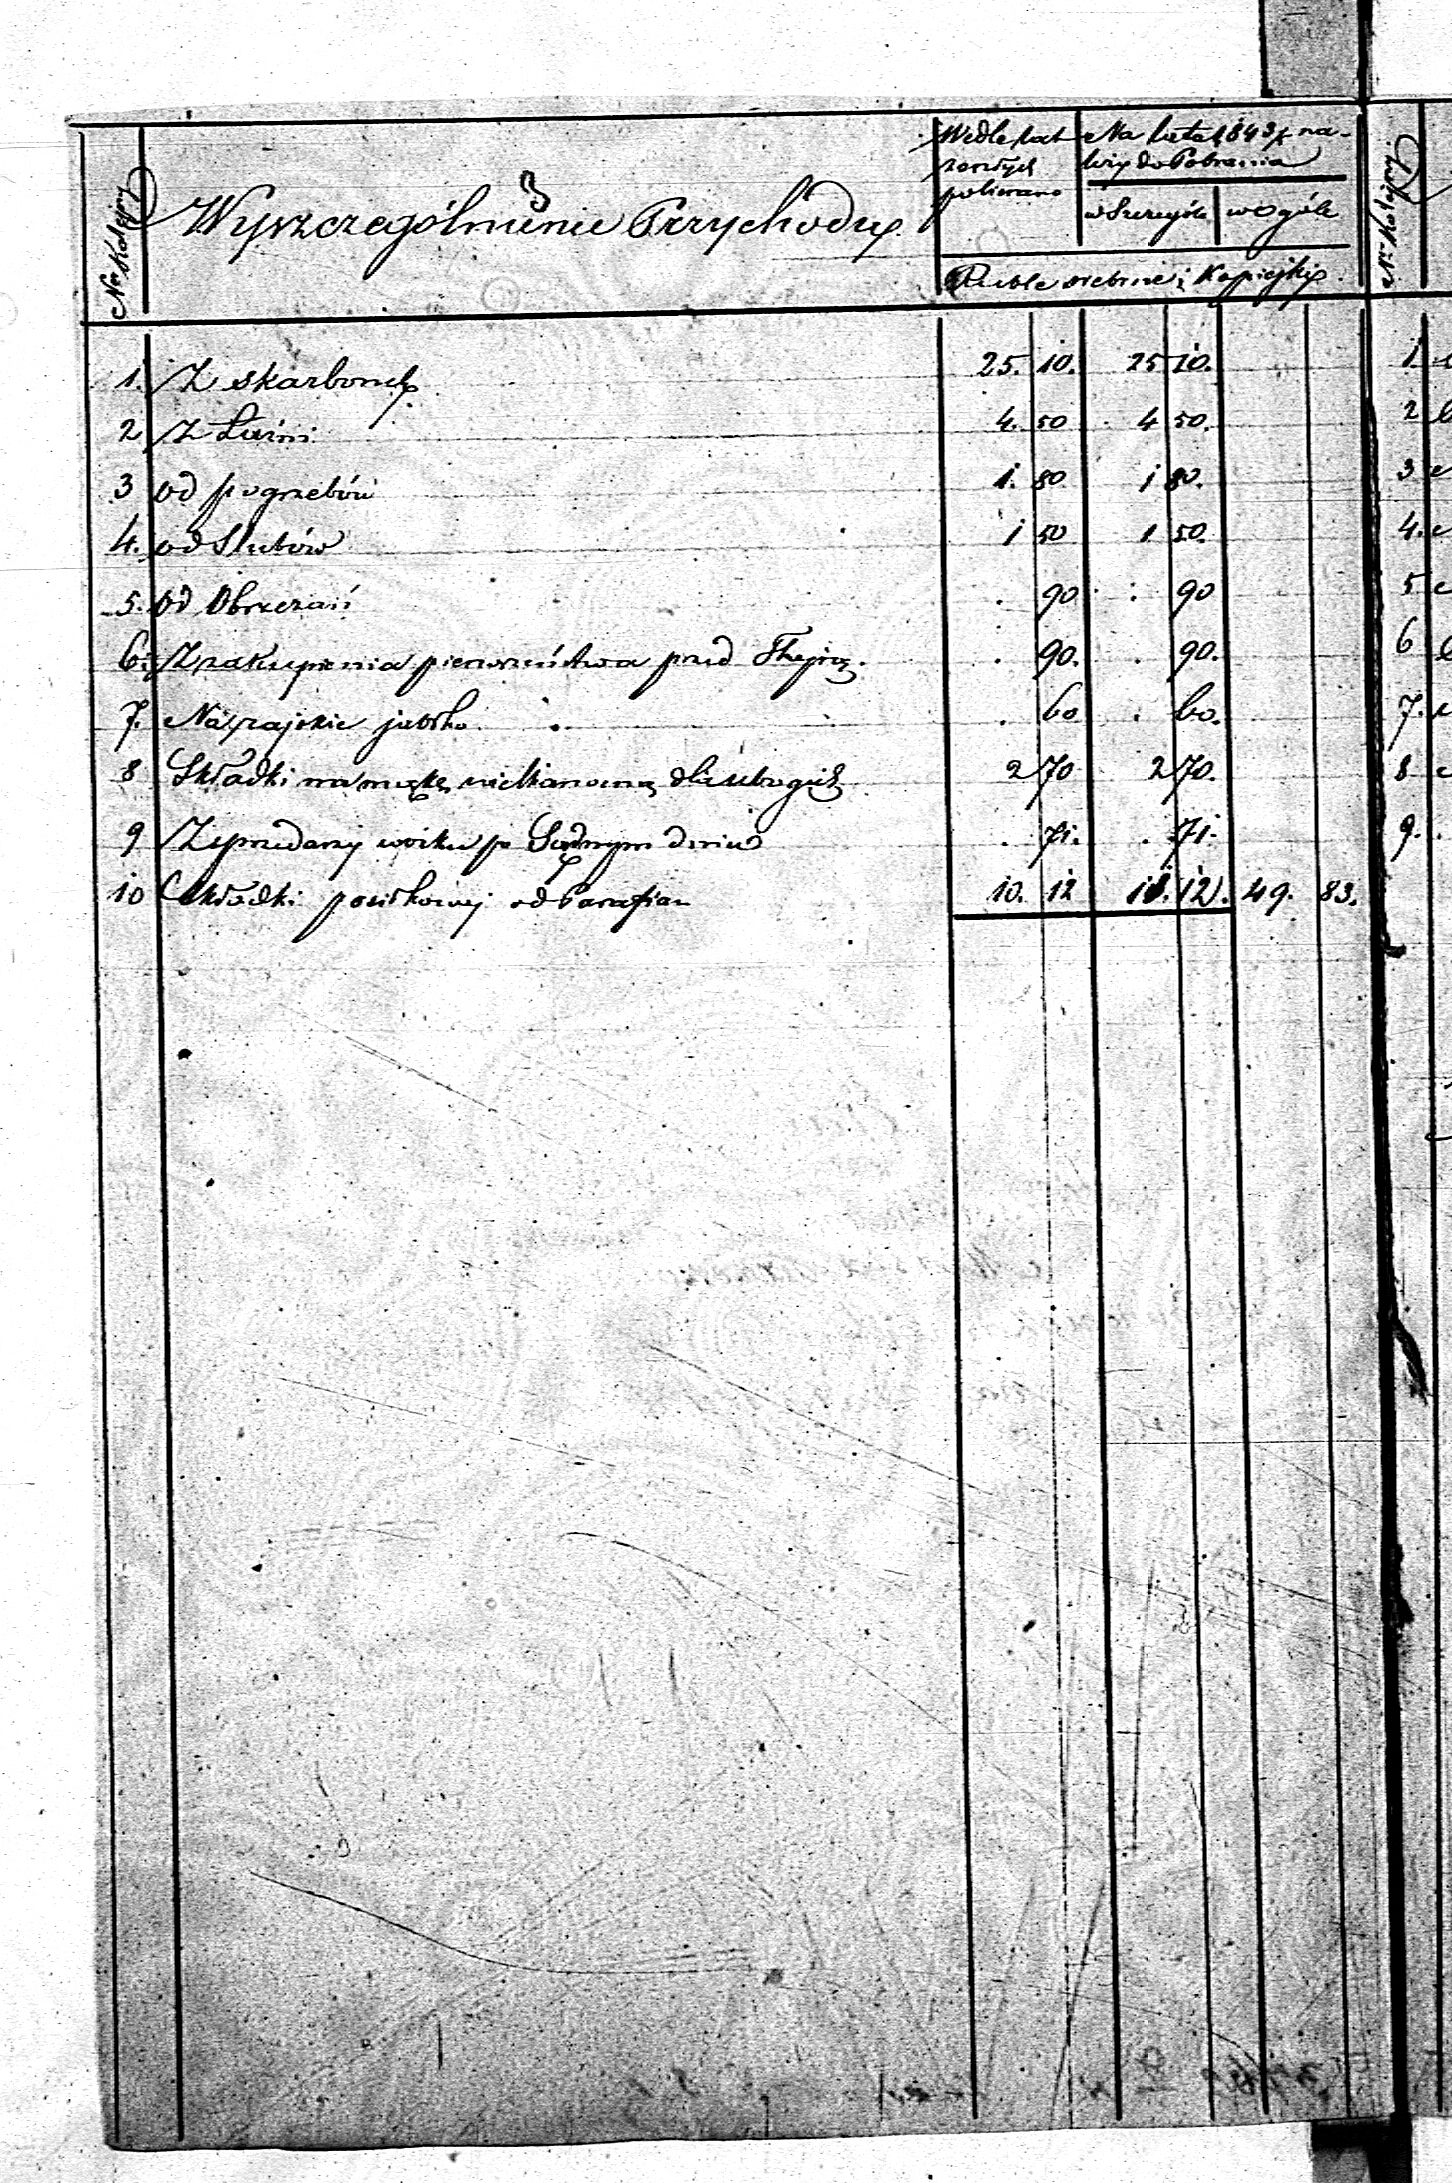 Nr Kolejny
Wyszczególnienie Przychodu
Wedle lat
zeszłych
pobierano
Na lata 1843/ na-
leży do Pobrania
w Szczególe
w ogóle
Ruble srebrne i Kopiejki
1. Z skarbonek 25. 10. 25 10.
2 Z Łaźni 4. 50 4 50.
3 od pogrzebów 1. 80 1 80.
4. od Slubów 1 50 1 50.
5. od Obrzezań . 90 . 90
6. Z zakupienia pierwszeństwa przed . 90. . 90.
7. Na rajskie jabłko . 60 . 60.
8 Składki na mąkę wielkanocną dla ubogich 2 70 2 70.
9 Z sprzedaży wosku po Sądnym dniu . 71. . 71.
10 Składki posiłkowej od Parafian 10. 12 10. 12. 49. 83.
Nr Kolejny
1
2
3
4.
5
6
7.
8
9.